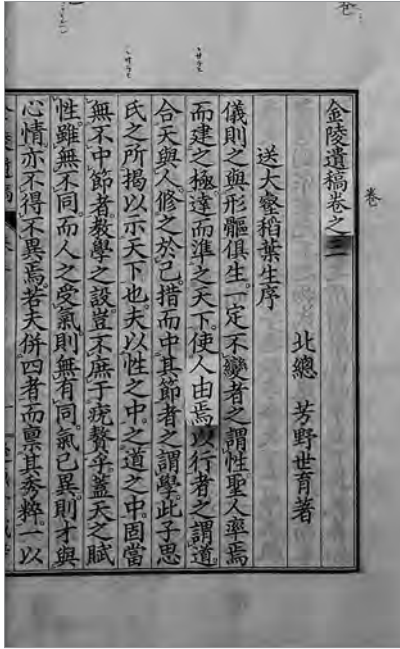 金陵遺稿卷之三
北總 芳野世育著
送大壑稻葉生序
儀則之與形軀俱生。一定不變者之謂性。聖人率焉
而建之極。達而準之天下。使人由焉以行者之謂道。
合天與人。修之於己。措而中其節者之謂學。此子思
氏之所揭以示天下也。夫以性之中。之道之中。固當
無不中節者。教學之設。豈不庶于疣贅乎。蓋天之賦
性。雖無不同。而人之受氣則無有同。氣已異。則才與
心情亦不得不異焉。若夫併四者而禀其秀粹。一以
卷